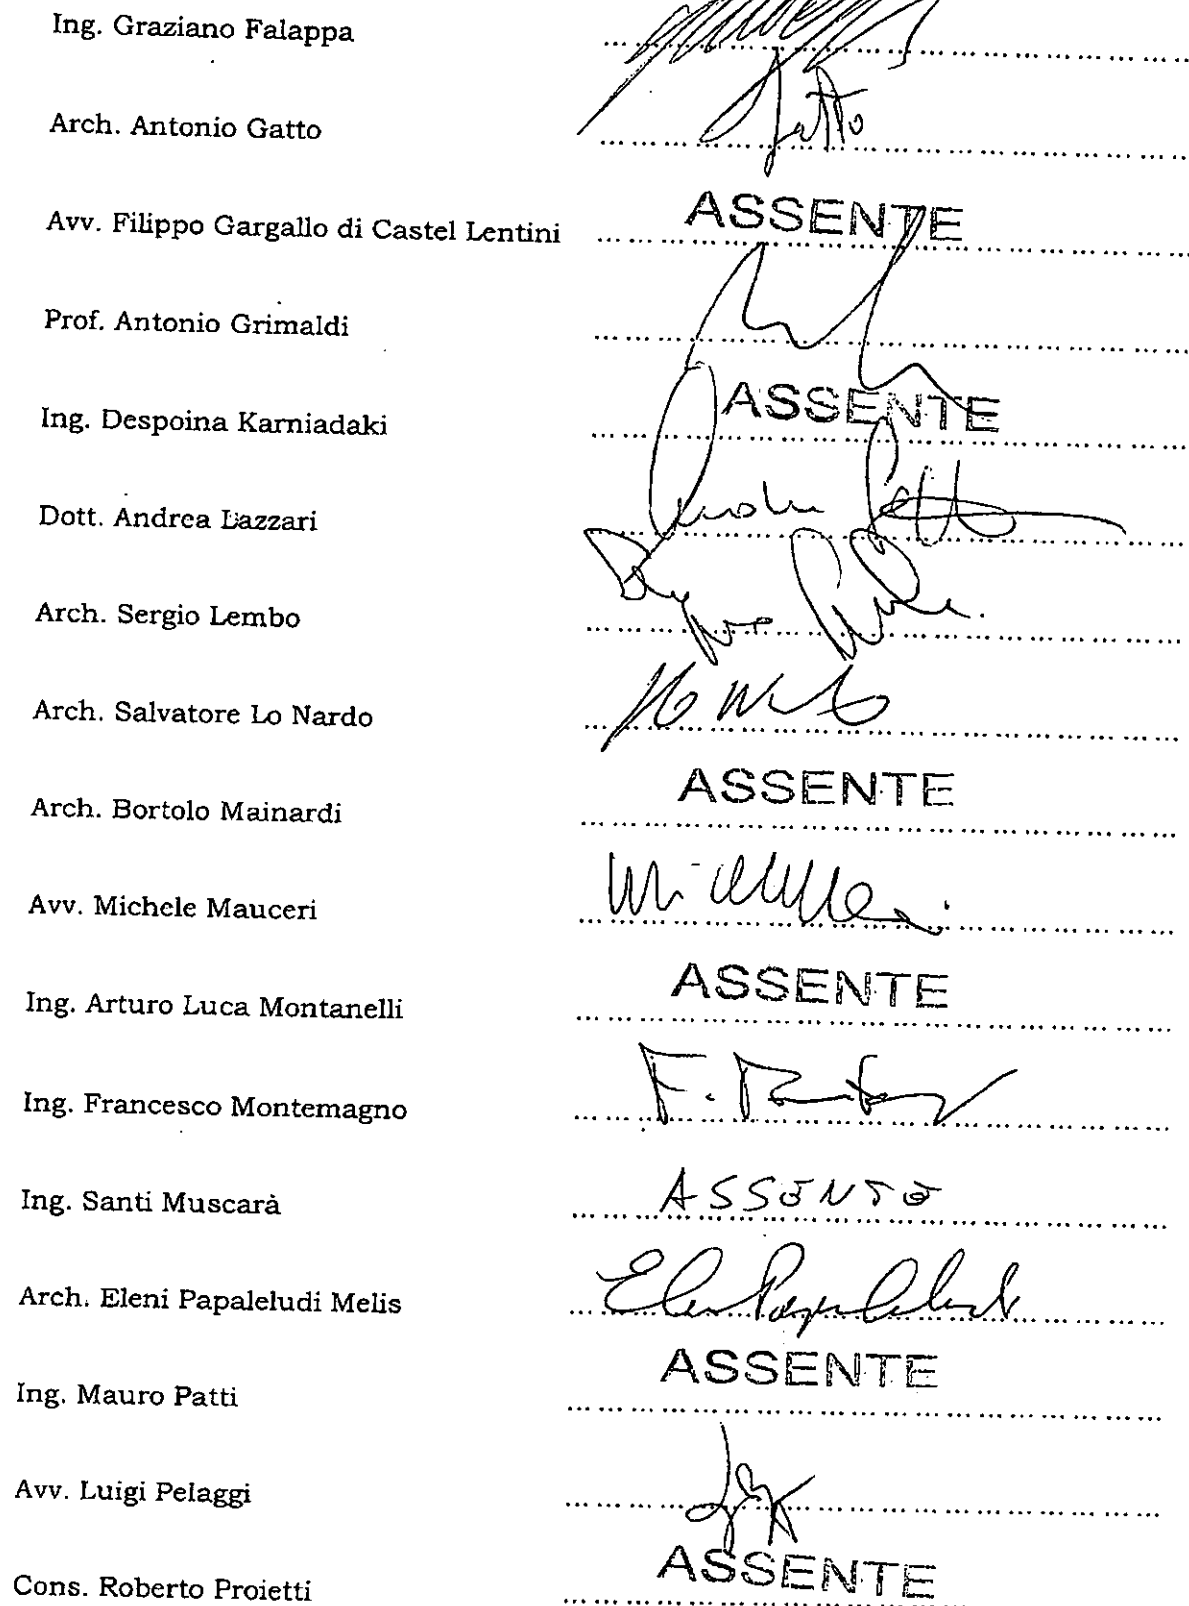 Ing. Graziano Falappa
Arch. Antonio Gatto Gatto
Avv. Filippo Gargallo di Castel Lentini ASSENTE
Prof. Antonio Grimaldi
Ing. Despoina Karniadaki ASSENTE
Dott. Andrea Lazzari
Arch. Sergio Lembo
Arch. Salvatore Lo Nardo
Arch. Bortolo Mainardi ASSENTE
Avv. Michele Mauceri
Ing. Arturo Luca Montanelli ASSENTE
Ing. Francesco Montemagno
Ing. Santi Muscarà ASSENTE
Arch. Eleni Papaleludi Melis
Ing. Mauro Patti ASSENTE
Avv. Luigi Pelaggi
Cons. Roberto Proietti ASSENTE